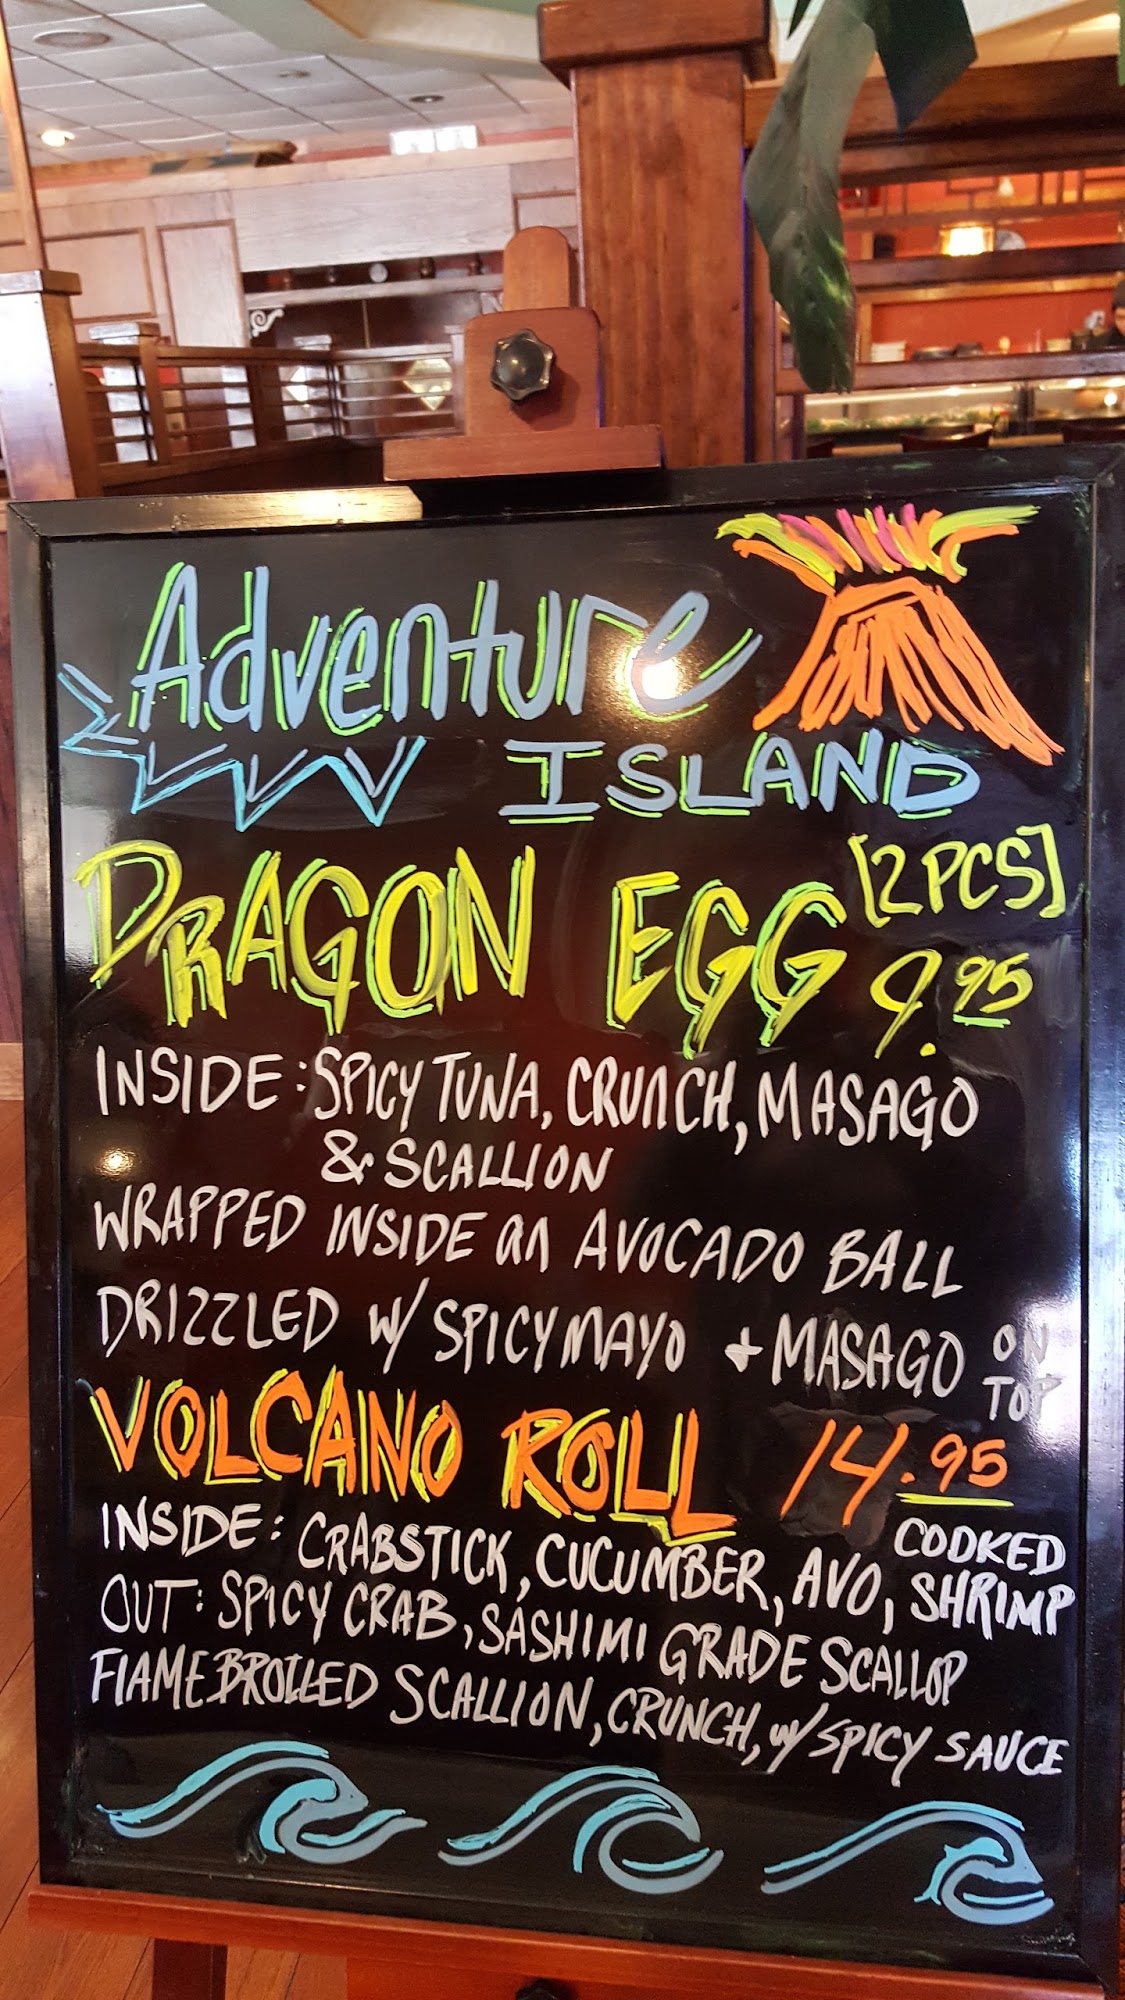 Adventure
ISLAND
DRAGON EGG [2 PCS]
9.95
INSIDE: SPICY TUNA, CRUNCH, MASAGO
& SCALLION
WRAPPED INSIDE an AVOCADO BALL
DRIZZLED w/ SPICY MAYO + MASAGO ON TOP
VOLCANO ROLL 14.95
INSIDE: CRABSTICK, CUCUMBER, AVO, COOKED SHRIMP
OUT: SPICY CRAB, SASHIMI GRADE SCALLOP
FLAME BROILED SCALLION, CRUNCH, w/ SPICY SAUCE